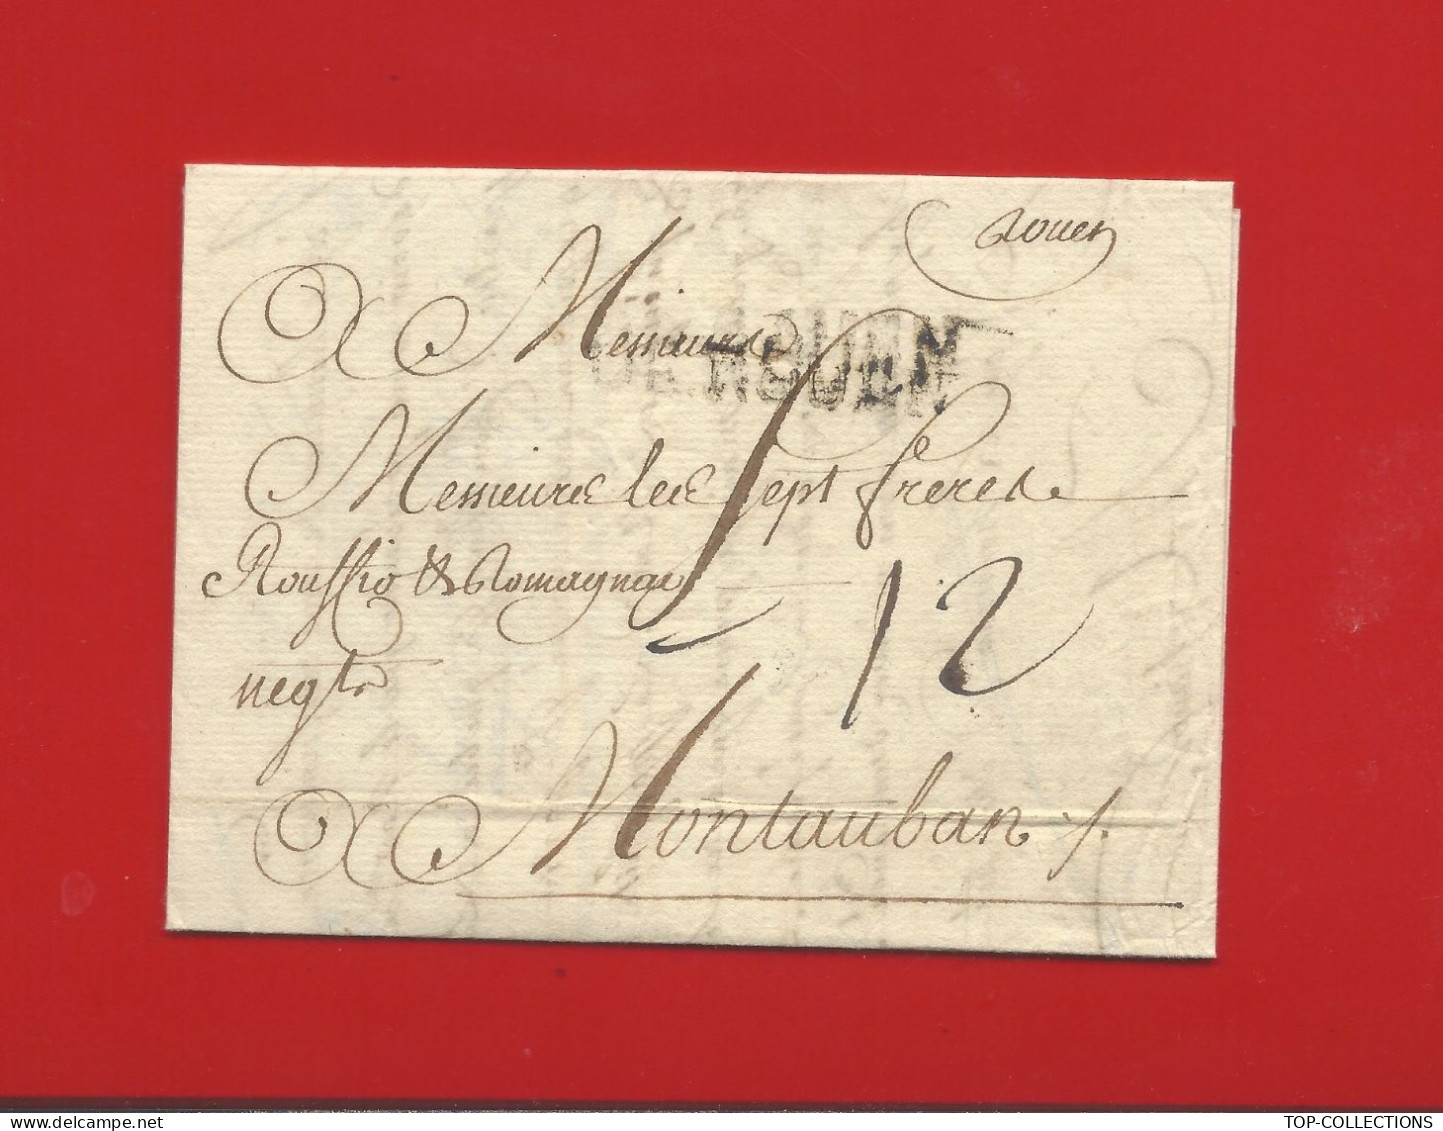 Rouen
A Messieurs
DE ROUEN
Messieurs les Sept freres
Rouffio & Romagnac
negts
12
A Montauban /.
TOP-COLLECTIONS